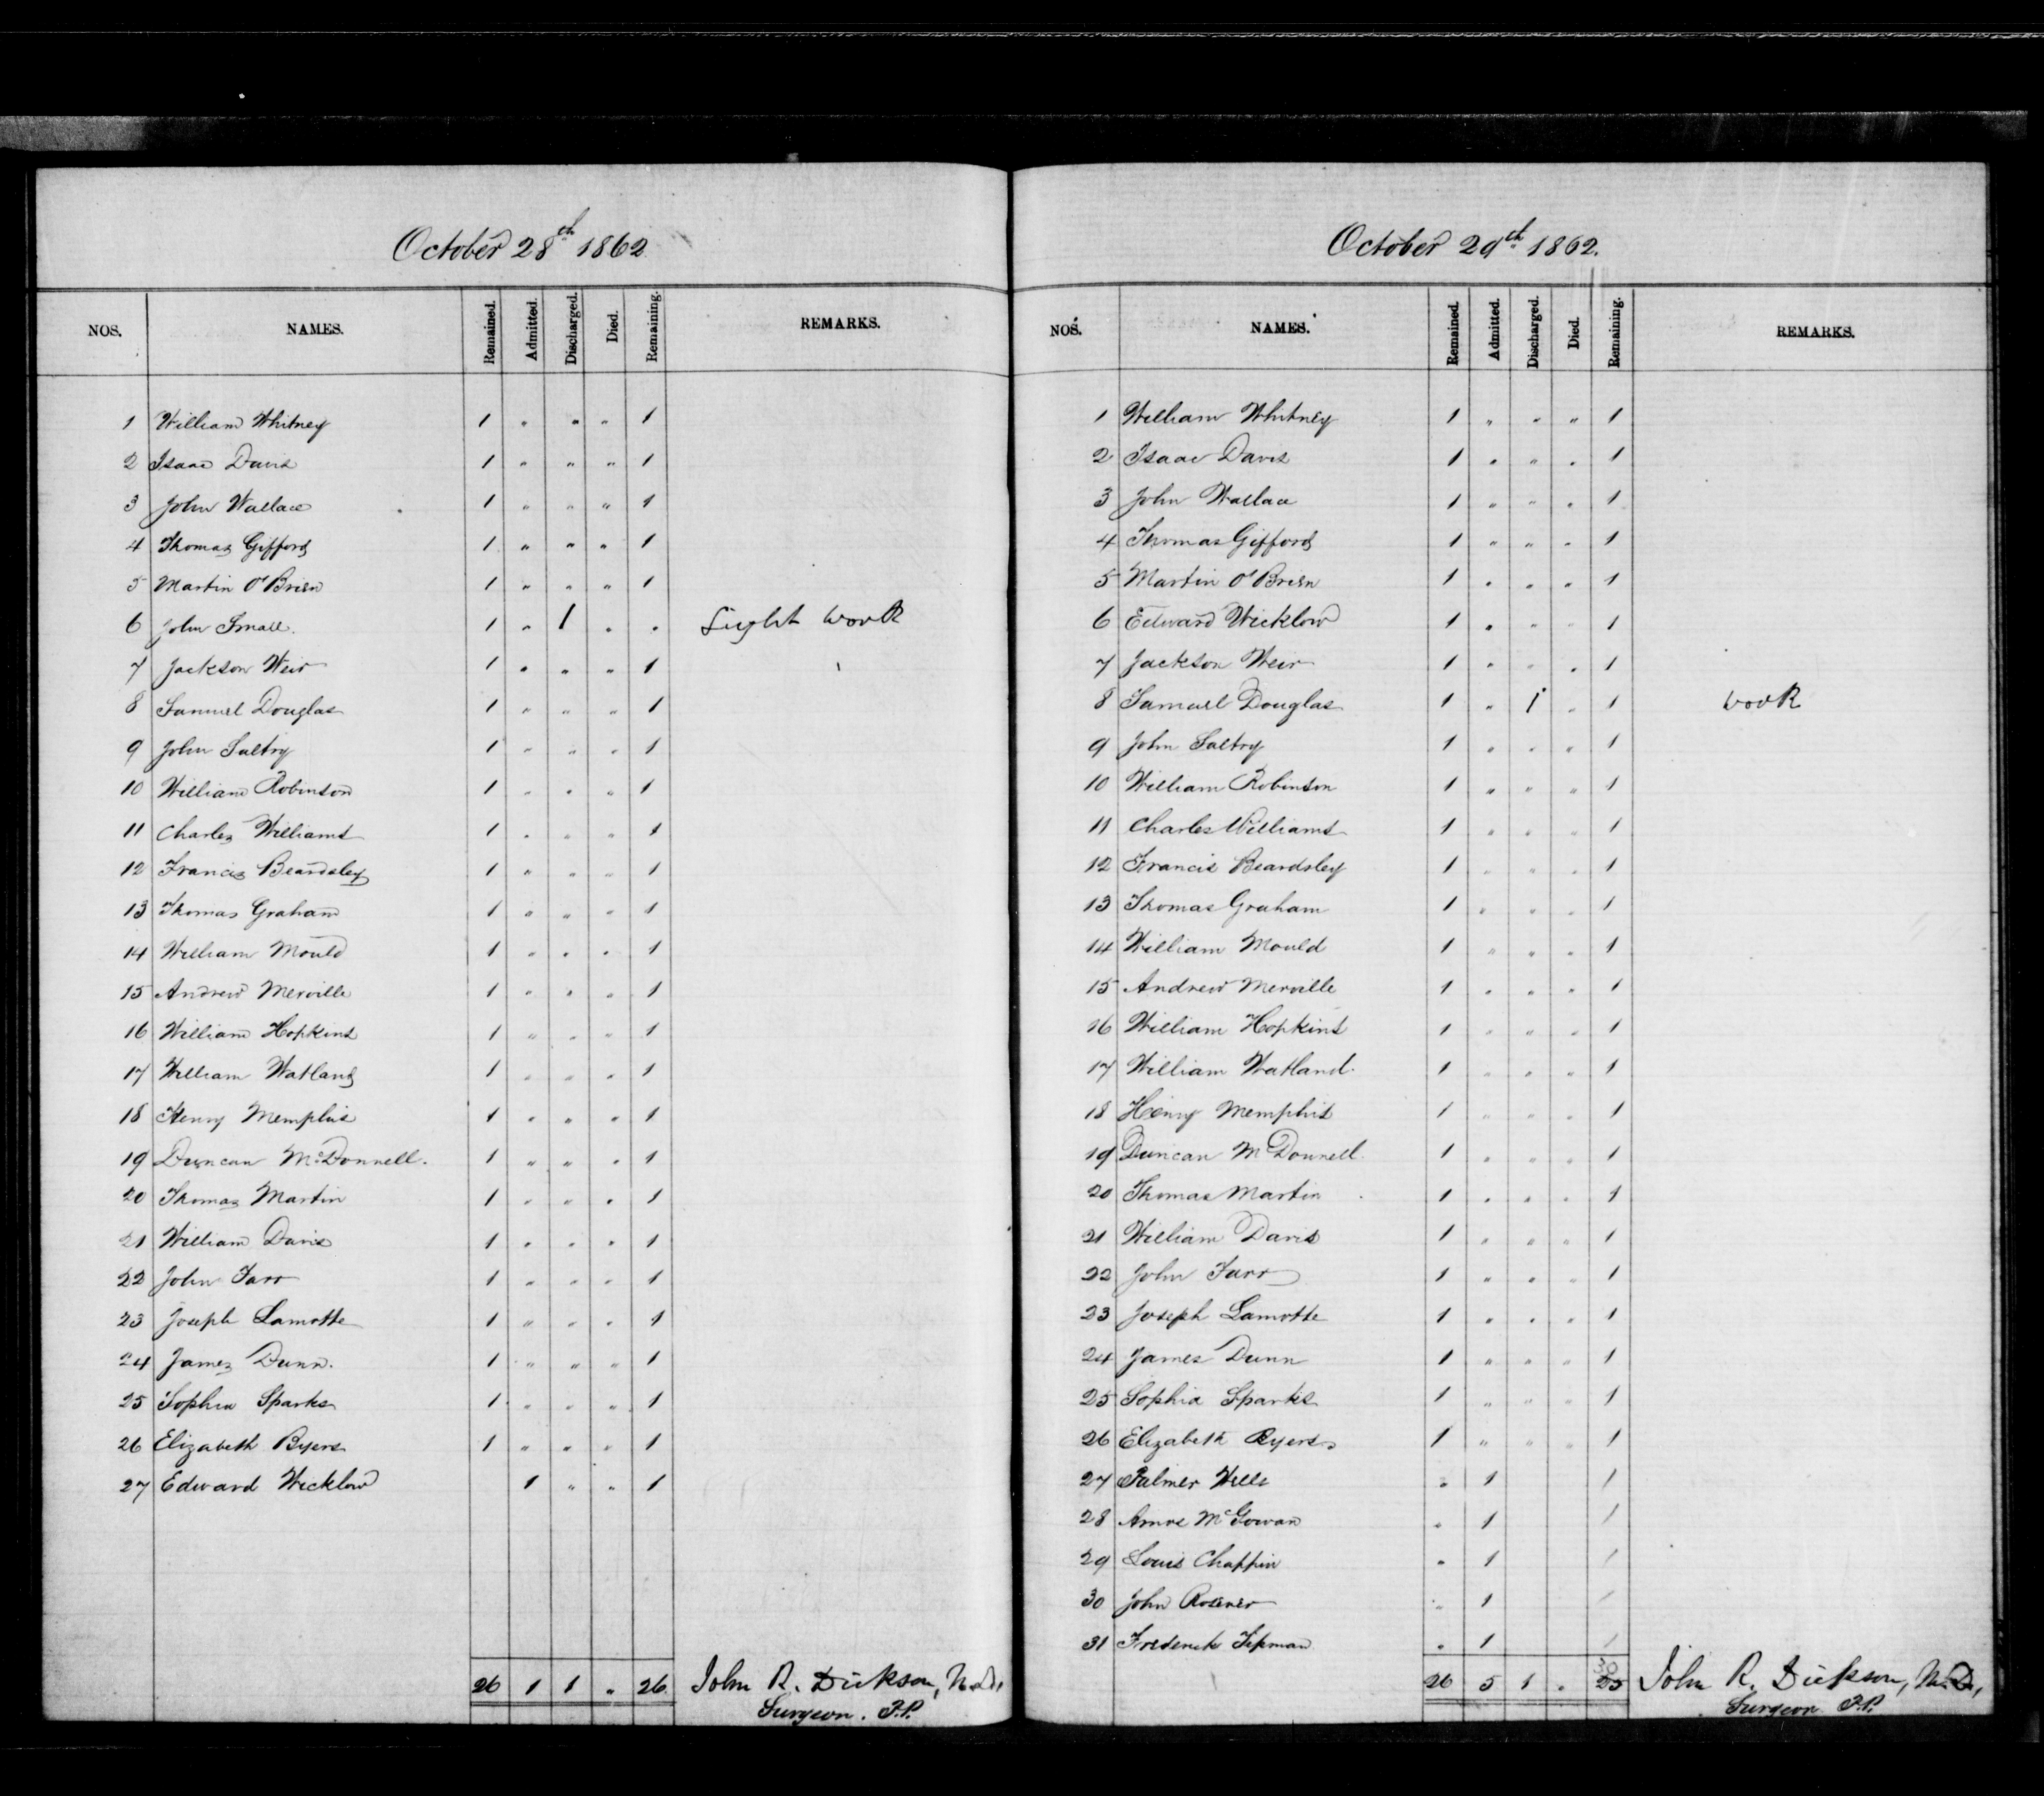 October 28th 1862
NOS. NAMES. Remained. Admitted. Discharged. Died. Remaining. REMARKS.
1 William Whitney 1 " " " 1
2 Isaac Davis 1 " " " 1
3 John Wallace 1 " " " 1
4 Thomas Gifford 1 " " " 1
5 Martin O'Brien 1 " " " 1
6 John Small. 1 " 1 " " Light work
7 Jackson Weir 1 " " " 1
8 Samuel Douglas 1 " " " 1
9 John Saltry 1 " " " 1
10 William Robinson 1 " " " 1
11 Charles Williams 1 " " " 1
12 Francis Beardsley 1 " " " 1
13 Thomas Graham 1 " " " 1
14 William Mould 1 " " " 1
15 Andrew Merville 1 " " " 1
16 William Hopkins 1 " " " 1
17 William Watland 1 " " " 1
18 Henry Memphis 1 " " " 1
19 Duncan McDonnell. 1 " " " 1
20 Thomas Martin 1 " " " 1
21 William Davis 1 " " " 1
22 John Farr 1 " " " 1
23 Joseph Lamotte 1 " " " 1
24 James Dunn. 1 " " " 1
25 Sophia Sparks 1 " " " 1
26 Elizabeth Byers 1 " " " 1
27 Edward Wicklow 1 " " 1
26 1 1 " 26 John R. Dickson, M.D.,
Surgeon. P.P.
October 29th 1862.
NOS. NAMES. Remained. Admitted. Discharged. Died. Remaining. REMARKS.
1 William Whitney 1 " " " 1
2 Isaac Davis 1 " " " 1
3 John Wallace 1 " " " 1
4 Thomas Gifford 1 " " " 1
5 Martin O'Brien 1 " " " 1
6 Edward Wicklow 1 " " " 1
7 Jackson Weir 1 " " " 1
8 Samuel Douglas 1 " 1 " 1 work
9 John Saltry 1 " " " 1
10 William Robinson 1 " " " 1
11 Charles Williams 1 " " " 1
12 Francis Beardsley 1 " " " 1
13 Thomas Graham 1 " " " 1
14 William Mould 1 " " " 1
15 Andrew Merville 1 " " " 1
16 William Hopkins 1 " " " 1
17 William Watland. 1 " " " 1
18 Henry Memphis 1 " " " 1
19 Duncan McDonnell. 1 " " " 1
20 Thomas Martin 1 " " " 1
21 William Davis 1 " " " 1
22 John Farr 1 " " " 1
23 Joseph Lamotte 1 " " " 1
24 James Dunn 1 " " " 1
25 Sophia Sparks 1 " " " 1
26 Elizabeth Byers 1 " " " 1
27 Palmer Wells " 1 1
28 McGowan " 1 1
29 Louis Chappin " 1 1
30 John " 1 1
31 Frederick " 1 1
26 5 1 " 30 John R. Dickson, M.D.,
Surgeon P.P.